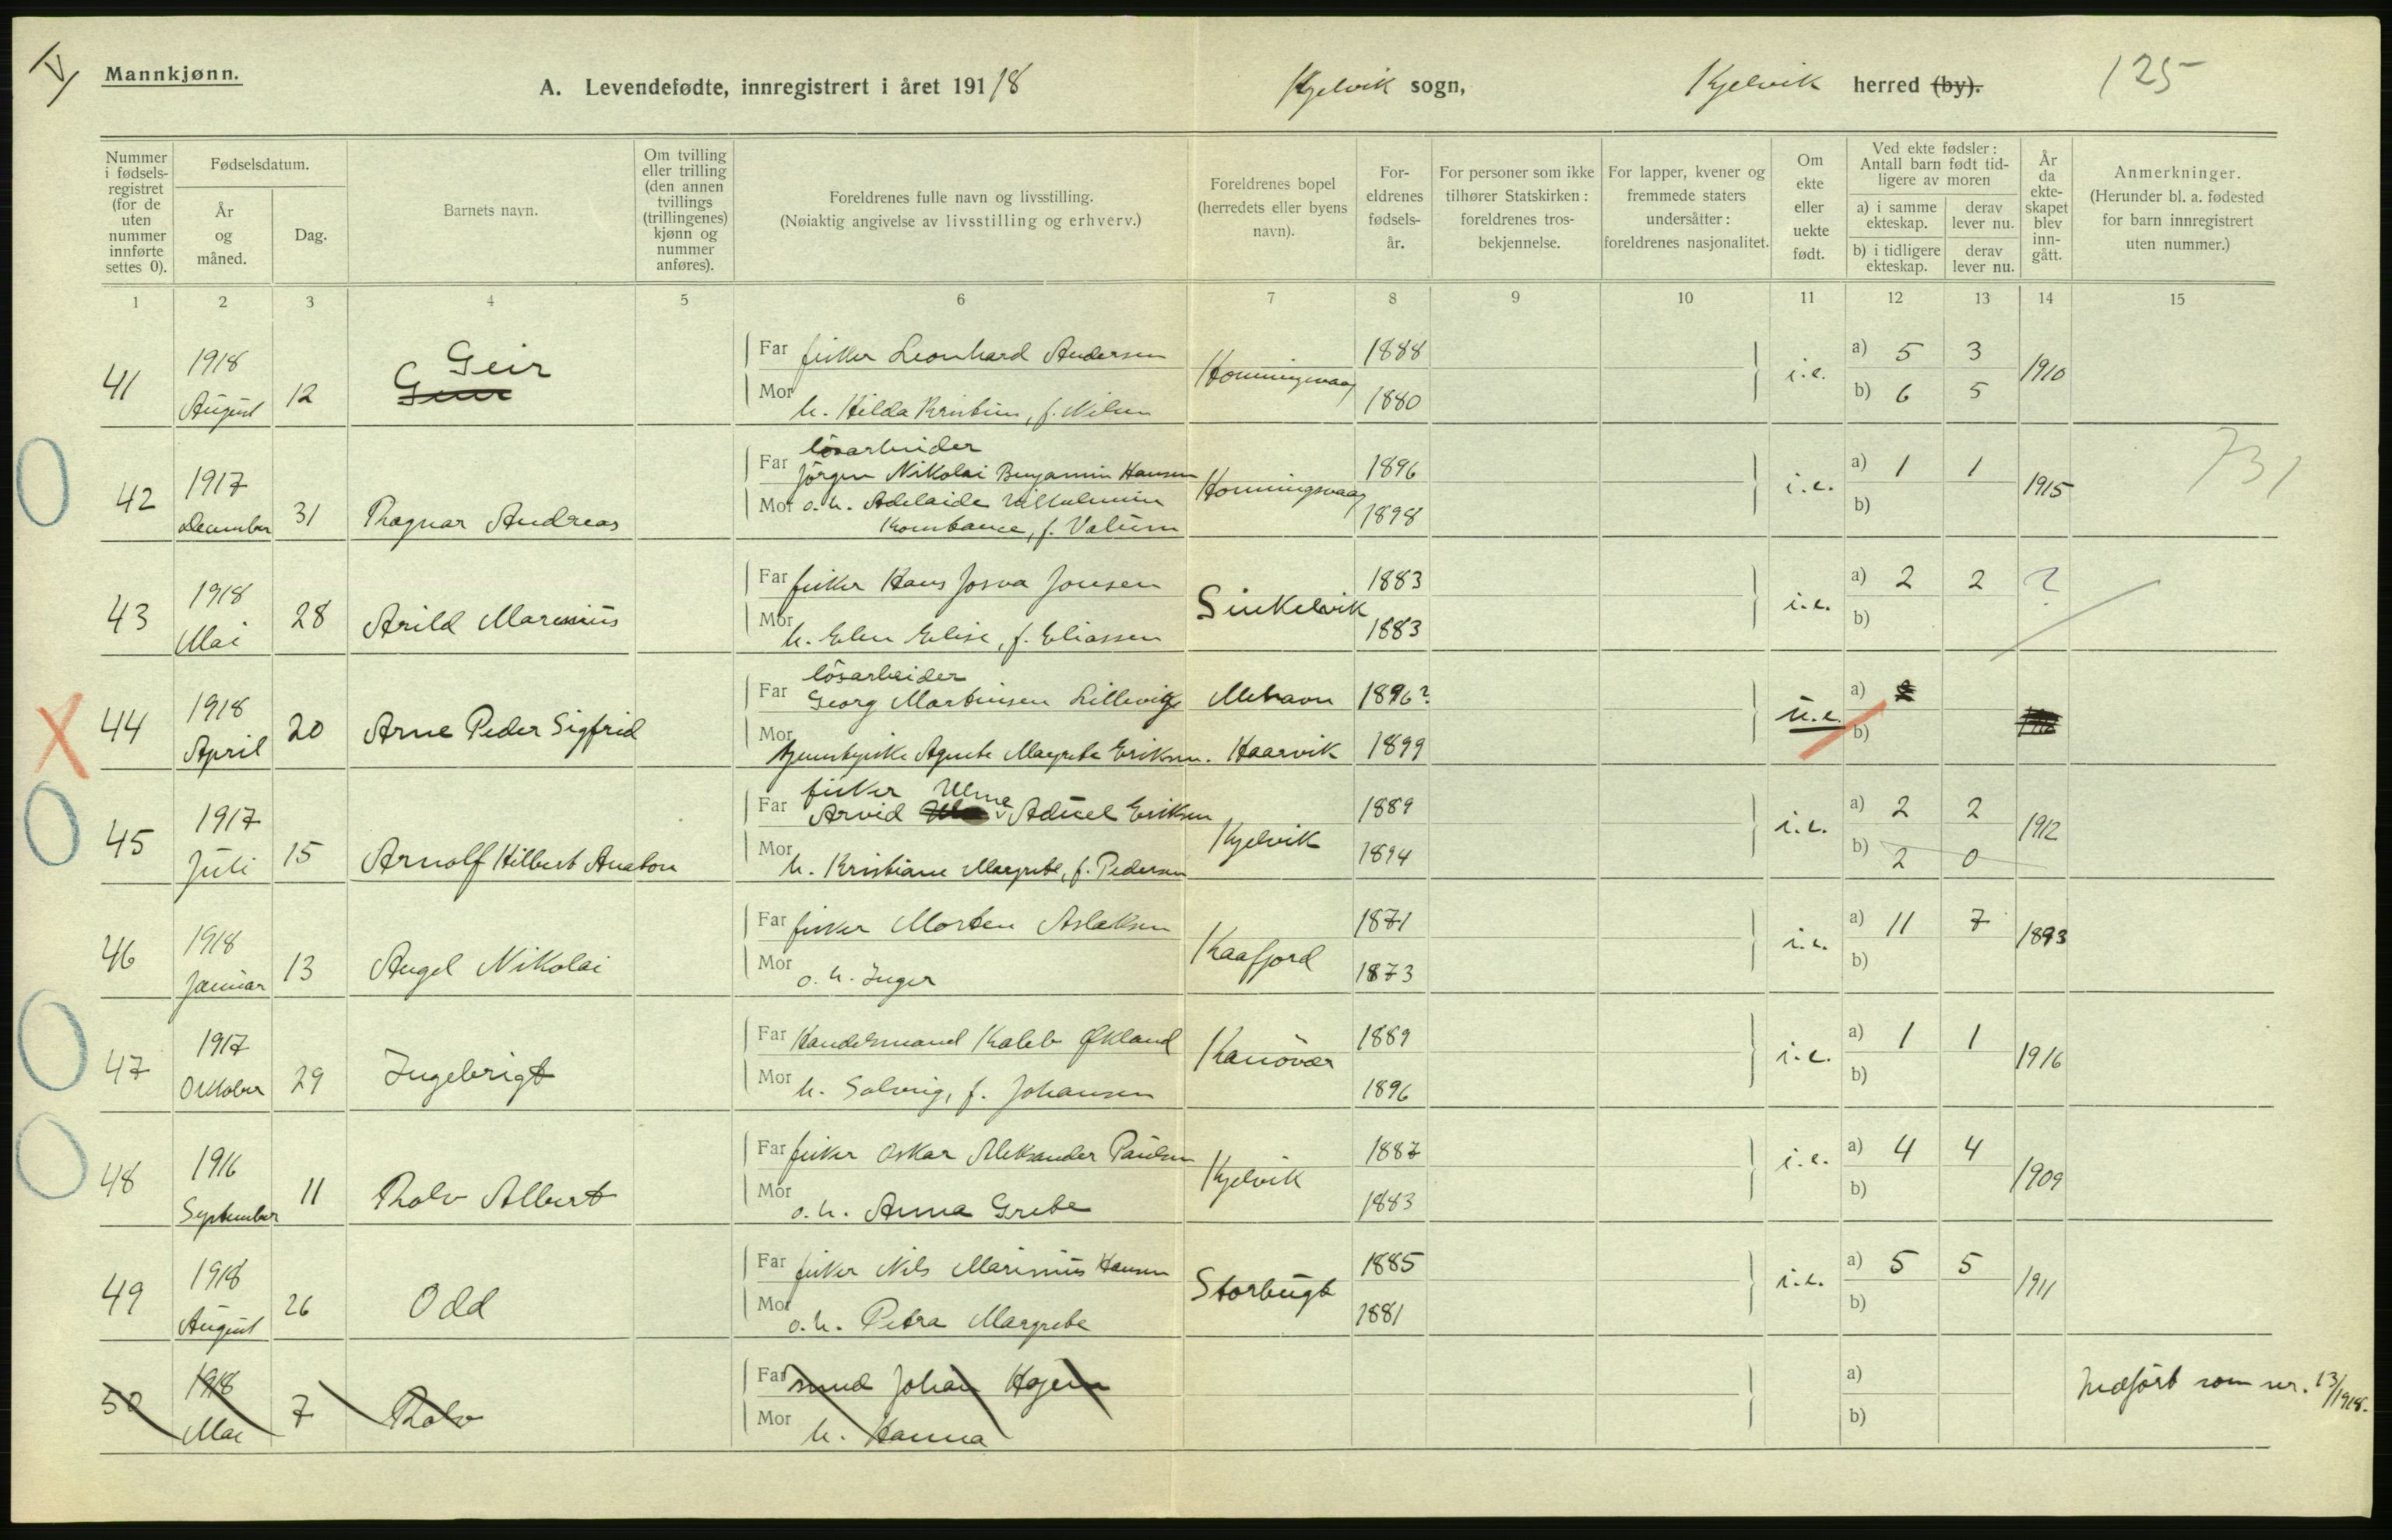 Mannkjønn.
A. Levendefødte, innregistrert i året 1918
Kjelvik sogn,
Kjelvik herred (by).
125
Nummer i fødsels-registret (for de uten nummer innførte settes 0).
Fødselsdatum.
År og måned.
Dag.
Barnets navn.
Om tvilling eller trilling (den annen tvillings (trillingenes) kjønn og nummer anføres).
Foreldrenes fulle navn og livsstilling.
(Nøiaktig angivelse av livsstilling og erhverv.)
Foreldrenes bopel (herredets eller byens navn).
For-eldrenes fødsels-år.
For personer som ikke tilhører Statskirken: foreldrenes tros-bekjennelse.
For lapper, kvener og fremmede staters undersåtter: foreldrenes nasjonalitet.
Om ekte eller uekte født.
Ved ekte fødsler: Antall barn født tid-ligere av moren
a) i samme ekteskap.
derav lever nu.
b) i tidligere ekteskap.
derav lever nu.
År da ekte-skapet blev inn-gått.
Anmerkninger.
(Herunder bl. a. fødested for barn innregistrert uten nummer.)
1 2 3 4 5 6 7 8 9 10 11 12 13 14 15
41 1918 August 12 Geir
Far fisker Leonhard Andersen Honningsvaag 1888 i.e. a) 5 3 1910
Mor h. Hilda Kristine, f. Nilsen 1880 b) 6 5
42 1917 December 31 Ragnar Andreas
løsarbeider
Far Jörgen Nikolai Benjamin Hansen Honningsvaag 1896 i.e. a) 1 1 1915 731
Mor o.h. Adelaide Vilhelmine 1898 b)
Konstance, f. Valum
43 1918 Mai 28 Arild Marenius
Far fisker Hans Josva Jonsen Sinkelvik 1883 i.e. a) 2 2 ?
Mor h. Elen Elise, f. Eliassen 1883 b)
44 1918 April 20 Arne Peder Sigfrid
lösarbeider
Far Georg Martinsen Lillevig Mehavn 1896? u.e. a)
Mor Agnete Margrete Eriksen. Haarvik 1899 b)
45 1917 Juli 15 Arnolf Hilbert Anaton
fisker Ulme
Far Arvid Aduel Eriksen Kjelvik 1889 i.e. a) 2 2 1912
Mor h. Kristiane Margrete, f. Pedersen 1894 b) 2 0
46 1918 Januar 13 Angel Nikolai
Far fisker Morten Aslaksen Kaafjord 1871 i.e. a) 11 7 1893
Mor o.h. Inger 1873 b)
47 1917 Oktober 29 Ingebrigt
Far Handelsmand Kaleb Økland Kamöyvær 1889 i.e. a) 1 1 1916
Mor h. Solveig, f. Johansen 1896 b)
48 1916 September 11 Rolv Albert
Far fisker Oskar Aleksander Paulsen Kjelvik 1887 i.e. a) 4 4 1909
Mor o.h. Anna Grete 1883 b)
49 1918 August 26 Odd
Far fisker Nils Marinius Hansen Storbugt 1885 i.e. a) 5 5 1911
Mor o.h. Petra Margrete 1881 b)
50 1918 Mai 7 Rolv
Far smed Johan Hagen a) Indfört som nr. 13/1918.
Mor h. Hanna b)